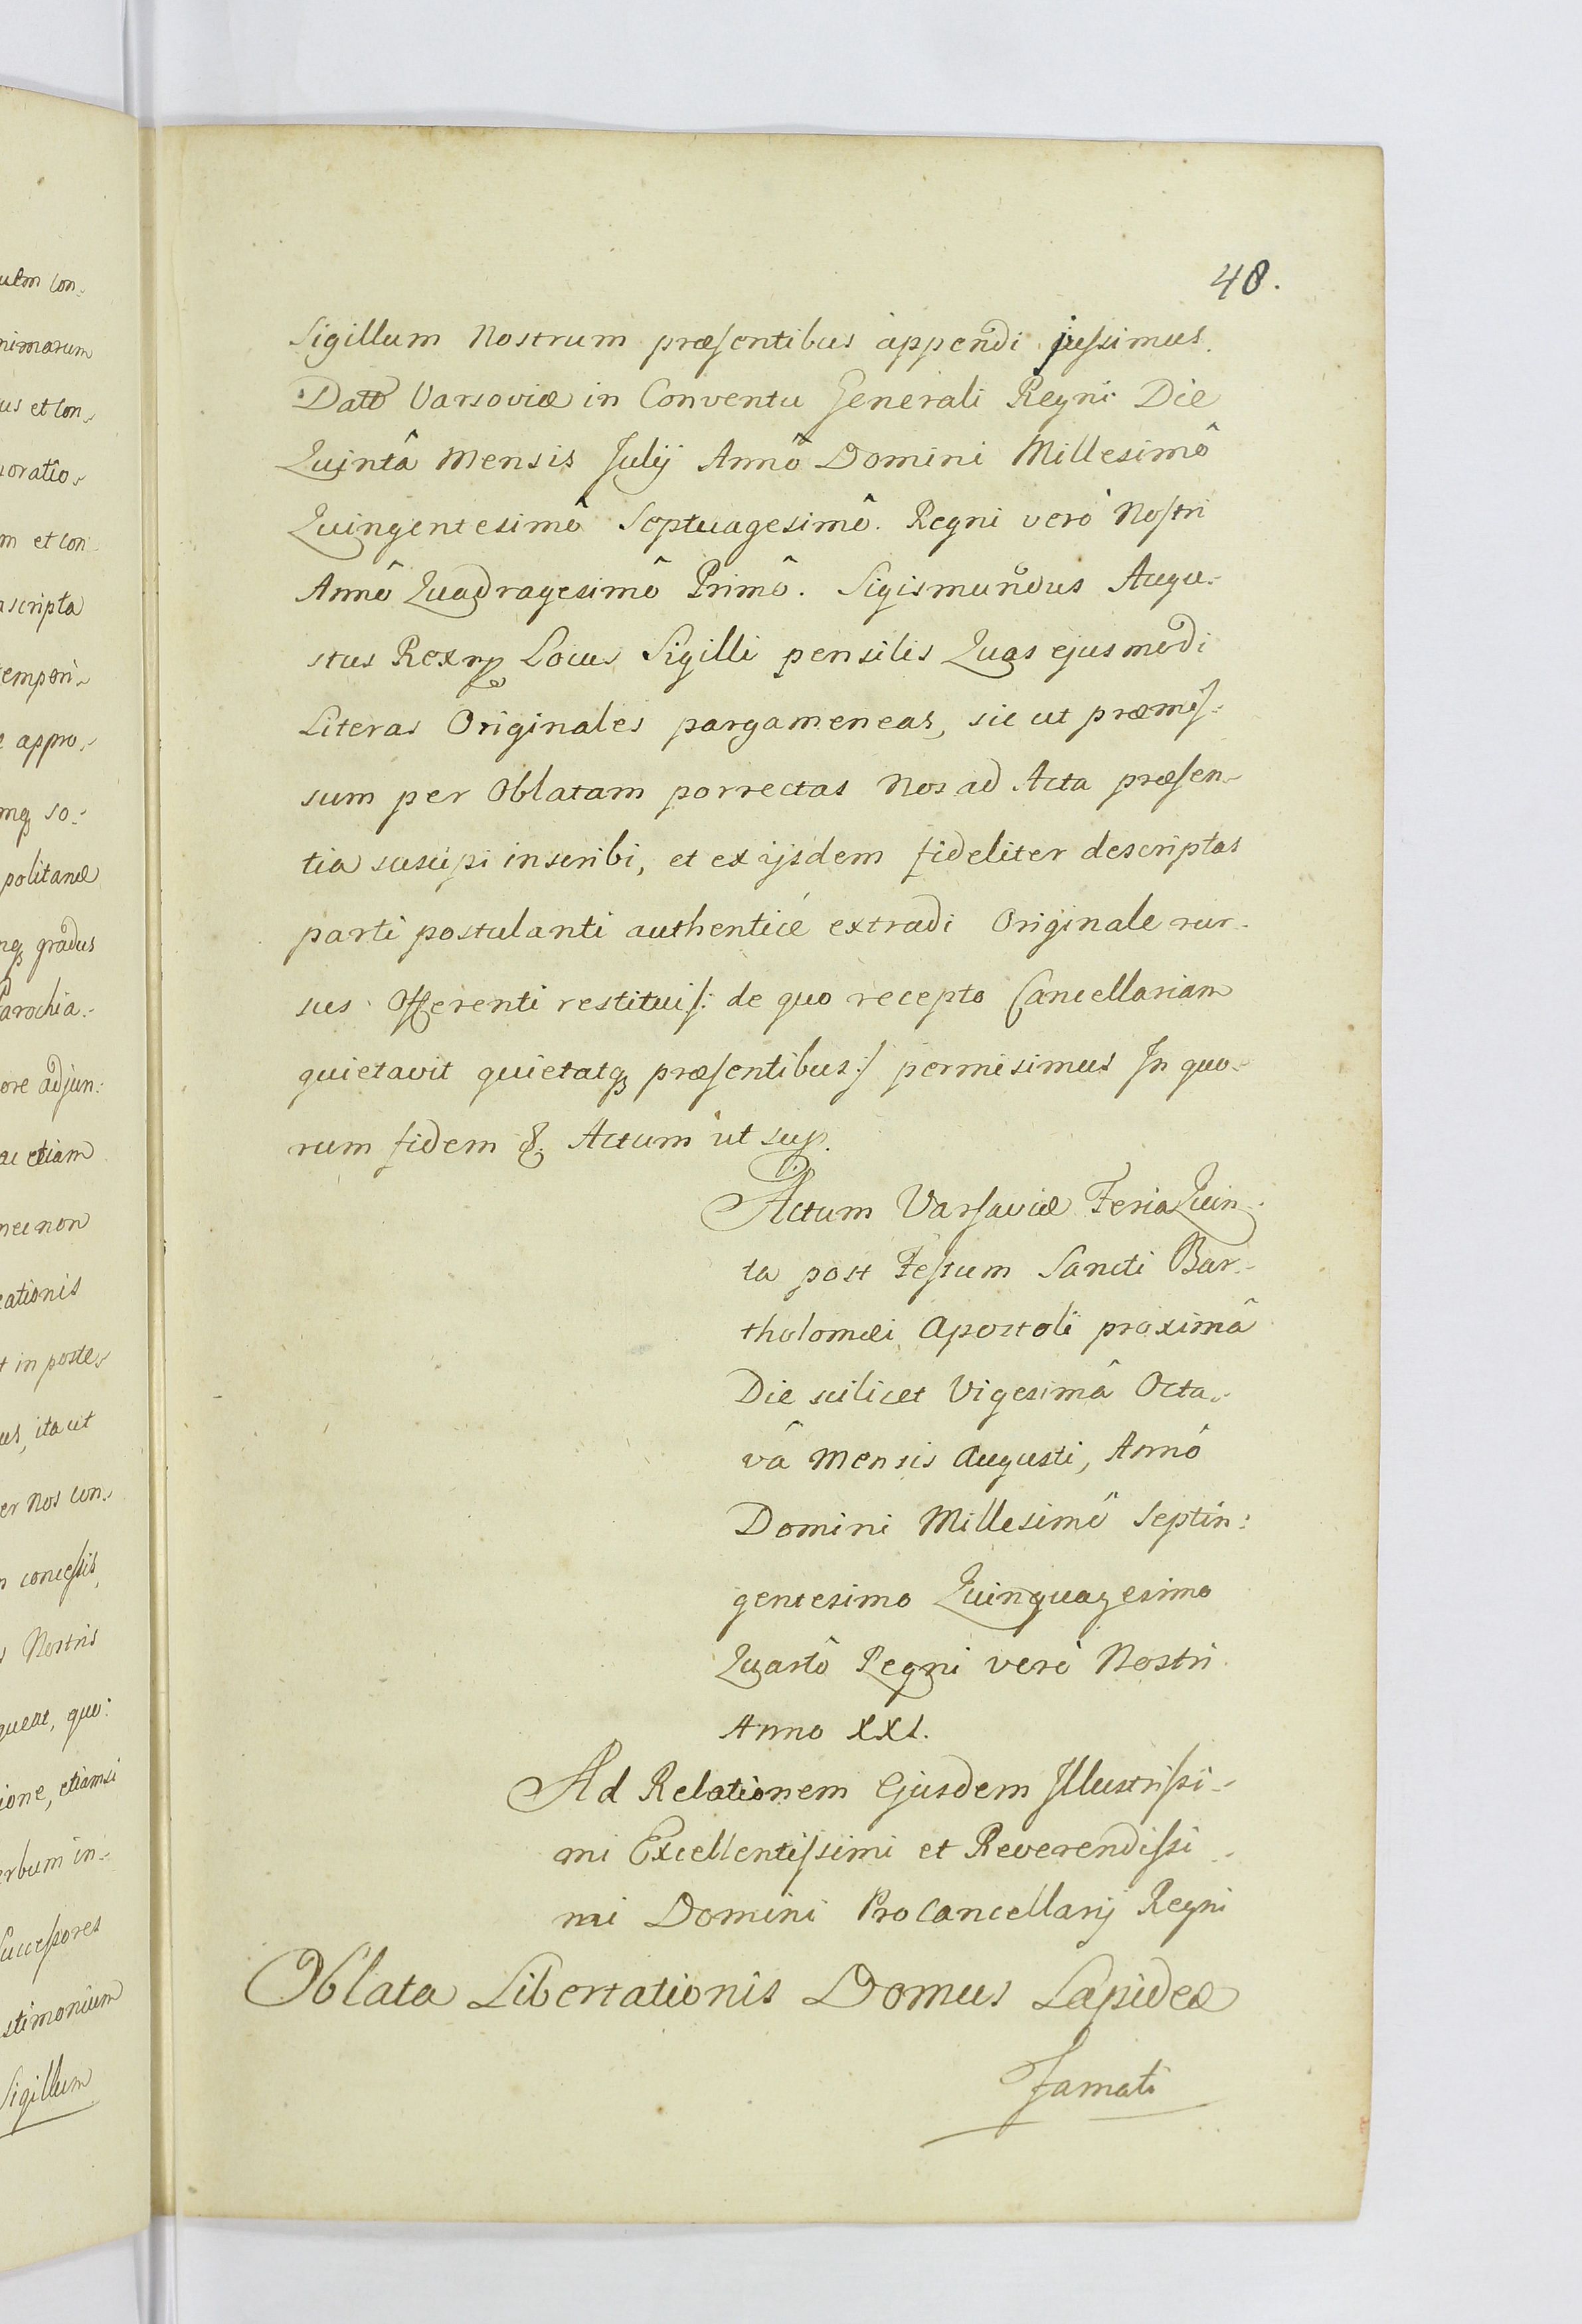 48.
Sigillum Nostrum præsentibus appendi jussimus.
Datt Varsoviæ in Conventu Generali Regni Die
Quintâ Mensis Julij Annô Domini Millesimô
Quingentesimô Septuagesimô. Regni verò Nostri
Annô Quadragesimô Primô. Sigismundus Augu-
stus Rex Locus Sigilli pensilis Quas ejusmodi
Literas Originales pargameneas, sicut præmis-
sum per Oblatam porrectas Nos ad Acta præsen-
tia suscipi inscribi, et ex ijsdem fideliter descriptas
parti postulanti authenticè extradi Originale rur-
sus Offerenti restitui /: de quo recepto Cancellariam
quietavit quietatq præsentibus :/ permisimus In quo-
rum fidem &. Actum ut sup.
Actum Varsaviæ Feria Quin-
ta post Festum Sancti Bar-
tholomæi Apostoli proximâ
Die scilicet Vigesimâ Octa-
vâ Mensis Augusti, Annô
Domini Millesimô Septin:
gentesimo Quinquagesimo
Quartô Regni verò Nostri
Anno XXI.
Ad Relationem Ejusdem Illustrissi-
mi Excellentissimi et Reverendissi-
mi Domini ProCancellarij Regni
Oblata Libertationis Domus Lapideæ
Famati
ulm con-
nimarum
us et con-
oratio-
m et con-
ascripta
tempori-
e appro-
mq so-
politanæ
nq gradus
Parochia-
ore adjun:
ac etiam
necnon
cationis
t in poste-
us, ita ut
er Nos con-
n concessis,
s Nostris
queat, quo:
ione, etiamsi
erbum in-
Successores
stimonium
Sigillum